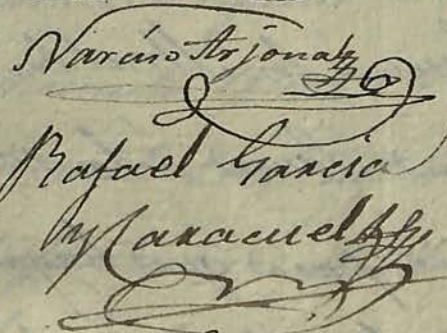 Narciso Arjona
Rafael Garcia
y Caracuel